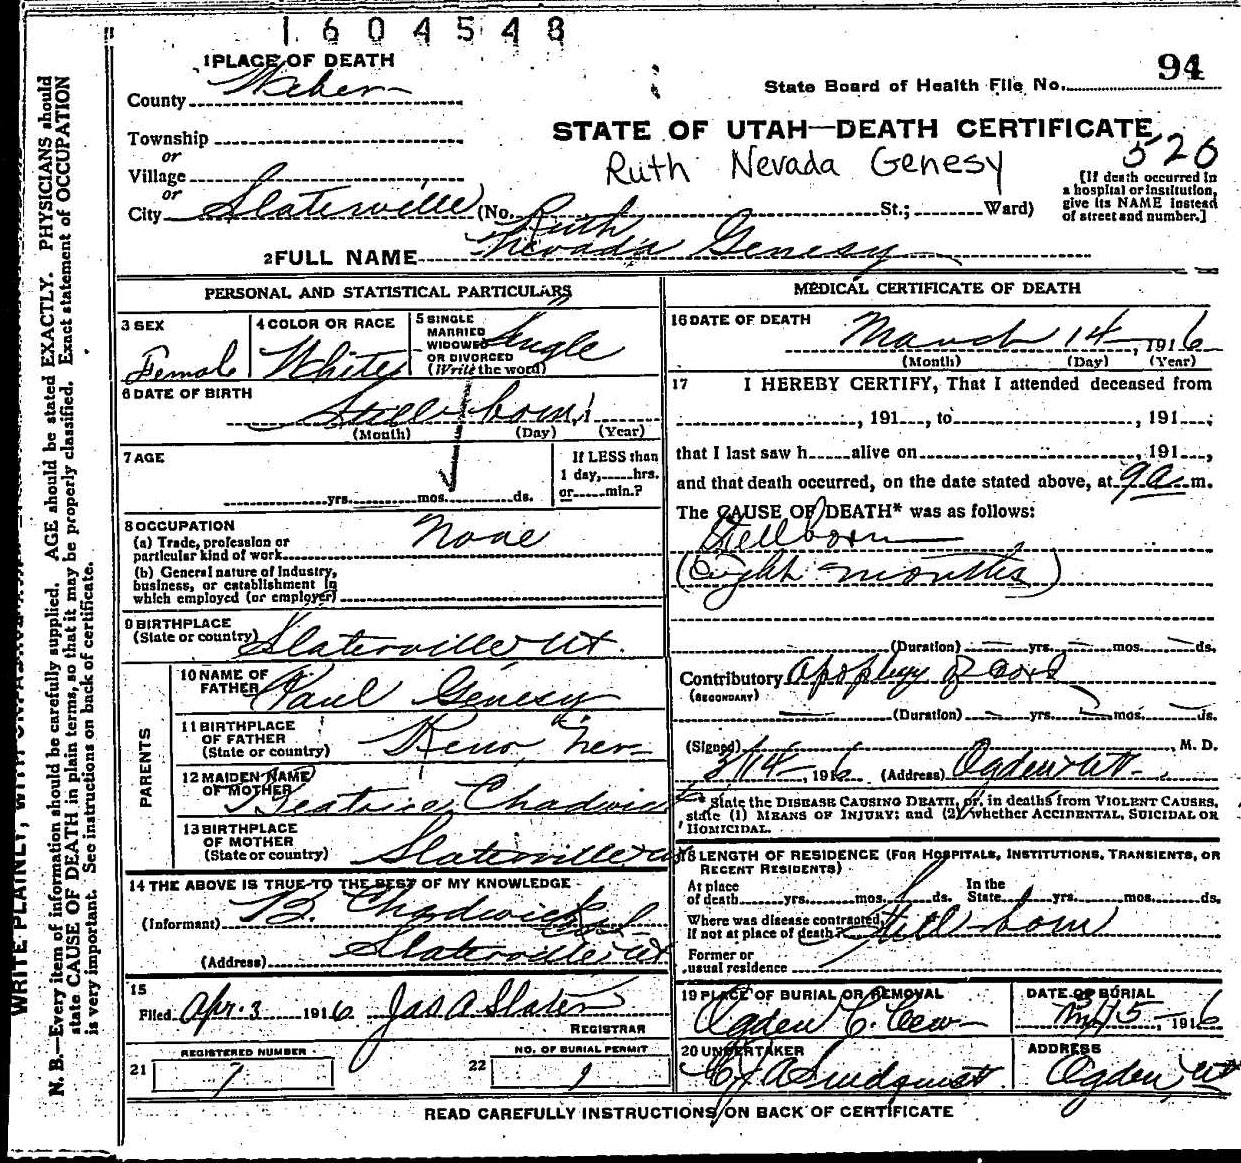 1604548
1 PLACE OF DEATH
94
County Weber
State Board of Health File No.
Township
STATE OF UTAH—DEATH CERTIFICATE
or
Ruth Nevada Genesy
526
Village
or
[If death occurred in
a hospital or institution,
give its NAME instead
of street and number.]
City Slaterville (No. St.; Ward)
Ruth
2 FULL NAME Nevada Genesy
PERSONAL AND STATISTICAL PARTICULARS
3 SEX
Female
4 COLOR OR RACE
White
5 SINGLE
MARRIED
WIDOWED
OR DIVORCED
(Write the word)
Single
6 DATE OF BIRTH
Still born
(Month) (Day) (Year)
7 AGE
yrs. mos. ds.
If LESS than
1 day, hrs.
or min.?
8 OCCUPATION
(a) Trade, profession or
particular kind of work None
(b) General nature of Industry,
business, or establishment in
which employed (or employer)
9 BIRTHPLACE
(State or country) Slaterville Ut.
PARENTS
10 NAME OF
FATHER Paul Genesy
11 BIRTHPLACE
OF FATHER
(State or country) Reno Nev
12 MAIDEN NAME
OF MOTHER Beatrice Chadwick
13 BIRTHPLACE
OF MOTHER
(State or country) Slaterville Ut
14 THE ABOVE IS TRUE TO THE BEST OF MY KNOWLEDGE
(Informant) B. Chadwick
(Address) Slaterville Ut
15
Filed Apr. 3 1916 Jas A Slater
REGISTRAR
REGISTERED NUMBER
21
NO. OF BURIAL PERMIT
22
MEDICAL CERTIFICATE OF DEATH
16 DATE OF DEATH
March 14, 1916
(Month) (Day) (Year)
17 I HEREBY CERTIFY, That I attended deceased from
, 191 , to , 191 ;
that I last saw h alive on , 191 ,
and that death occurred, on the date stated above, at 9 a. m.
The CAUSE OF DEATH* was as follows:
Stillborn
(Eight months)
(Duration) yrs. mos. ds.
Contributory
(SECONDARY)
(Duration) yrs. mos. ds.
(Signed) , M. D.
3/14, 1916 (Address) Ogden Ut
* State the DISEASE CAUSING DEATH, or, in deaths from VIOLENT CAUSES,
state (1) MEANS OF INJURY; and (2) whether ACCIDENTAL, SUICIDAL OR
HOMICIDAL.
18 LENGTH OF RESIDENCE (FOR HOSPITALS, INSTITUTIONS, TRANSIENTS, OR
RECENT RESIDENTS)
At place
of death yrs. mos. ds.
In the
State yrs. mos. ds.
Where was disease contracted,
If not at place of death? Still born
Former or
usual residence
19 PLACE OF BURIAL OR REMOVAL
Ogden C. Cem
DATE OF BURIAL
15, 1916
20 UNDERTAKER
ADDRESS
Ogden Ut
READ CAREFULLY INSTRUCTIONS ON BACK OF CERTIFICATE
N. B.—Every item of information should be carefully supplied. AGE should be stated EXACTLY. PHYSICIANS should
state CAUSE OF DEATH in plain terms, so that it may be properly classified. Exact statement of OCCUPATION
is very important. See instructions on back of certificate.